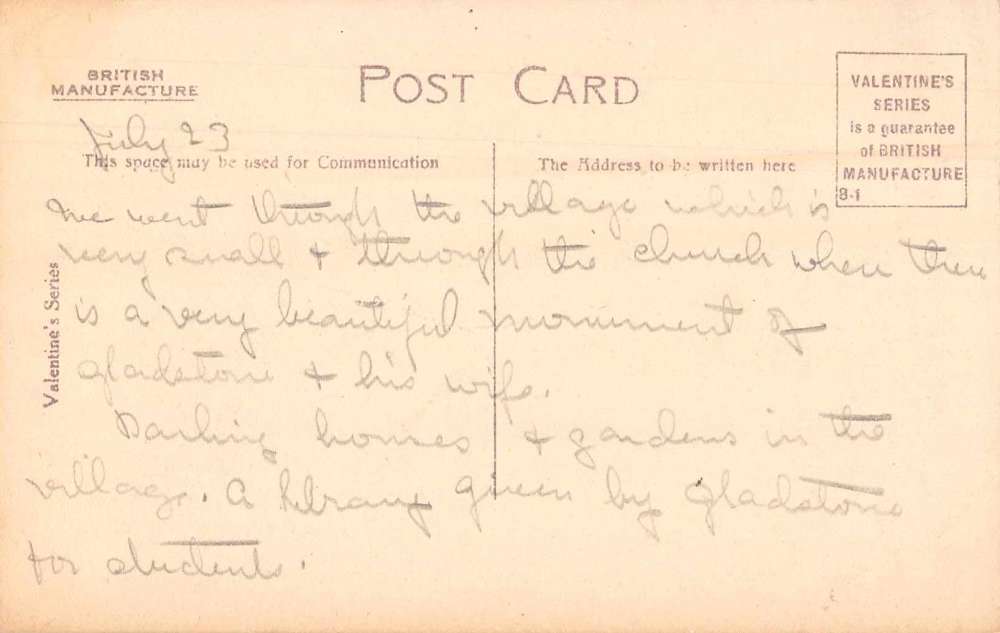 BRITISH
MANUFACTURE
POST CARD
VALENTINE'S
SERIES
is a guarantee
of BRITISH
MANUFACTURE
B·1
July 23
This space may be used for Communication
The Address to be written here
Valentine's Series
We went through the village which is
very small + through the church where there
is a very beautiful monument of
gladstone + his wife.
Darling homes + gardens in the
village. A library given by gladstone
for students.